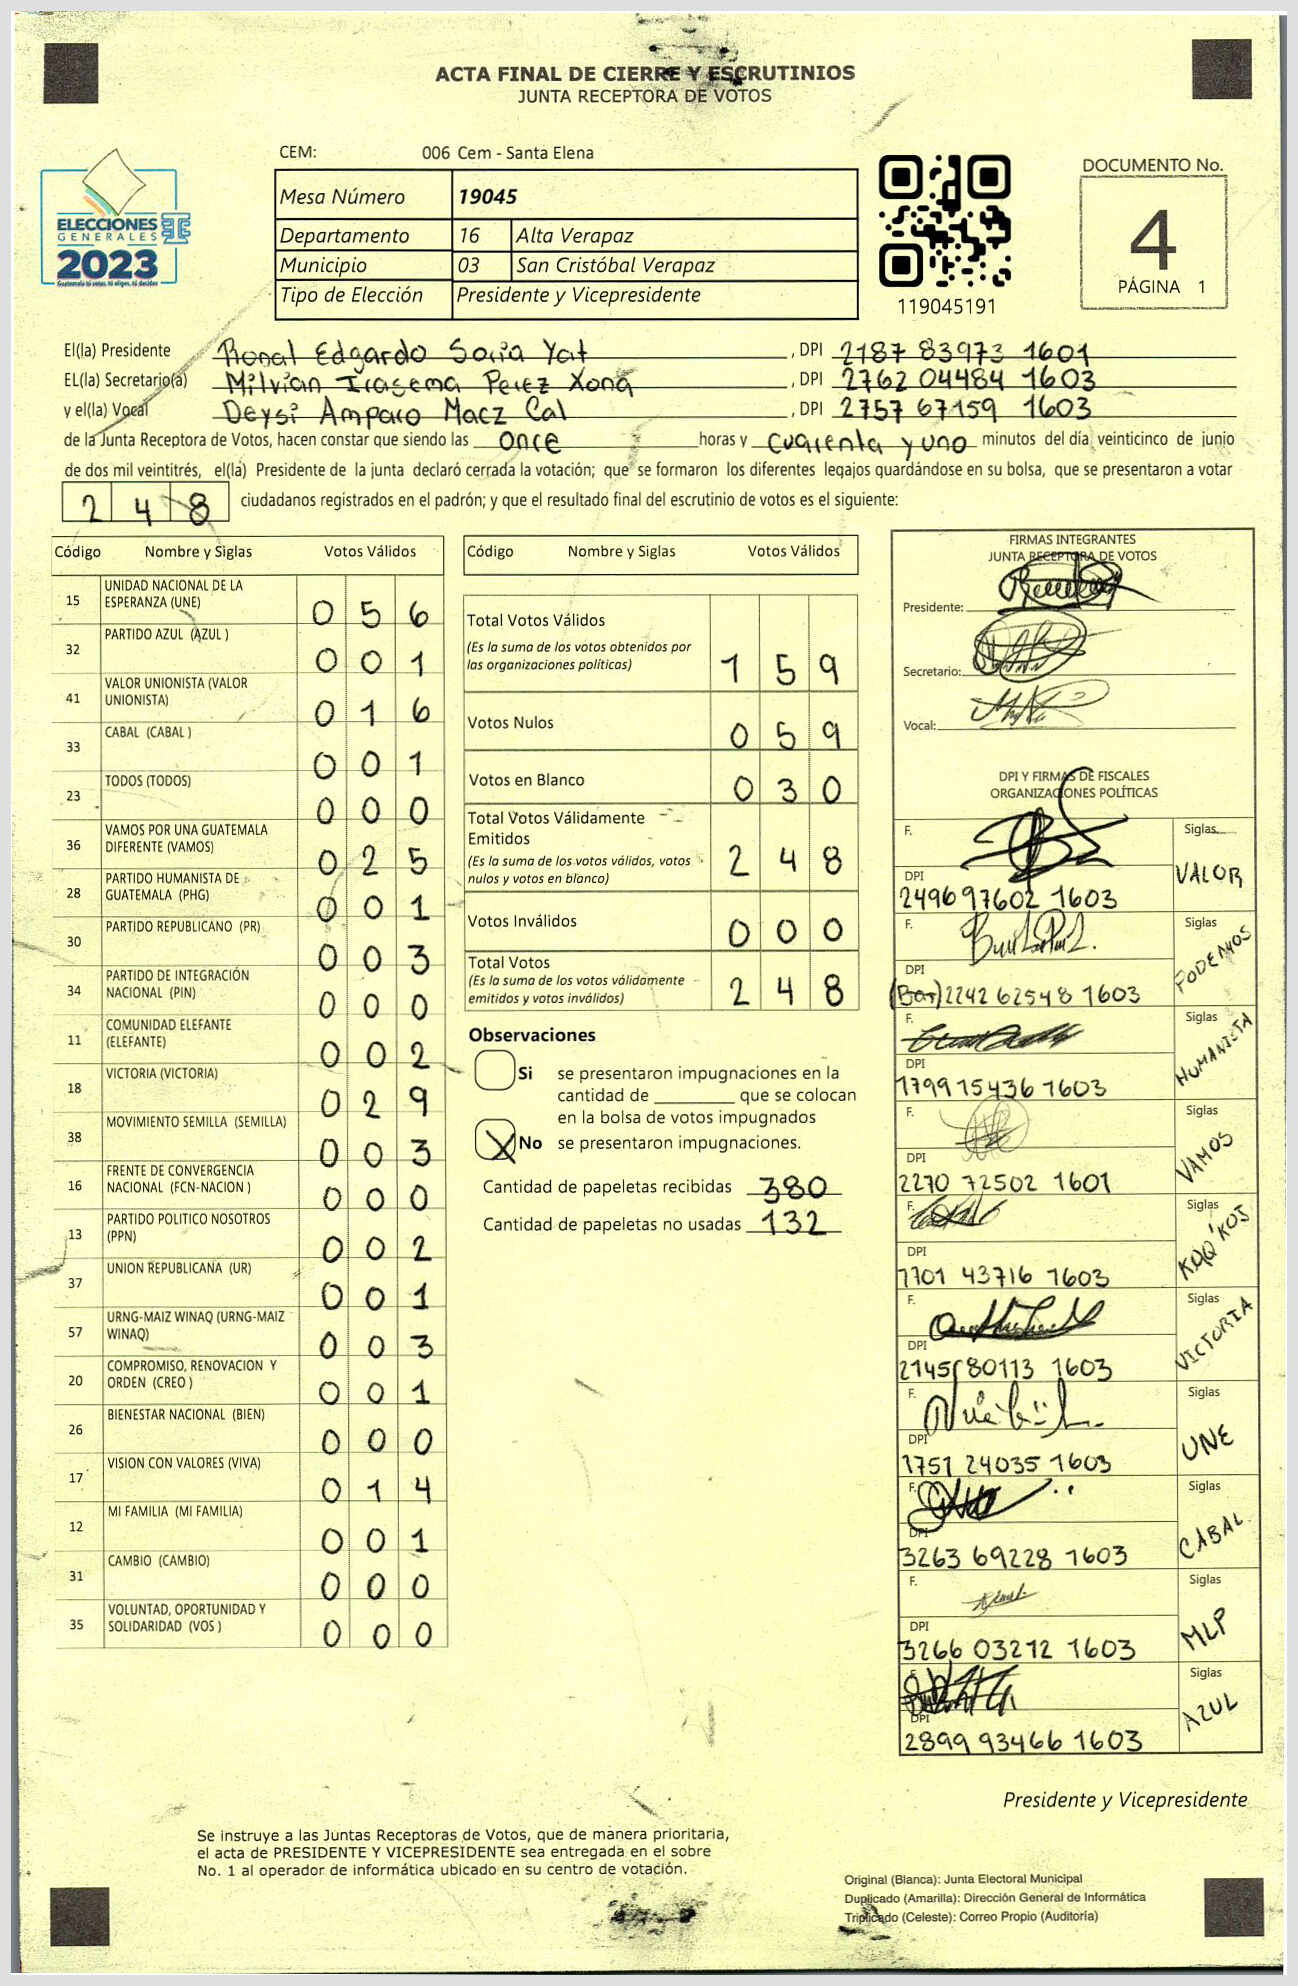 ACTA FINAL DE CIERRE Y ESCRUTINIOS
JUNTA RECEPTORA DE VOTOS
CEM: 006 Cem - Santa Elena
ELECCIONES
GENERALES
2023
Guatemala tú votas, tú eliges, tú decides
Mesa Número 19045
Departamento 16 Alta Verapaz
Municipio 03 San Cristóbal Verapaz
Tipo de Elección Presidente y Vicepresidente
119045191
DOCUMENTO No.
4
PÁGINA 1
El(la) Presidente Ronal Edgardo Soria Yat , DPI 2187 83973 1601
EL(la) Secretario(a) Milvian Irasema Perez Xona , DPI 2762 04484 1603
y el(la) Vocal Deysi Amparo Macz Cal , DPI 2757 67159 1603
de la Junta Receptora de Votos, hacen constar que siendo las once horas y cuarenta y uno minutos del día veinticinco de junio
de dos mil veintitrés, el(la) Presidente de la junta declaró cerrada la votación; que se formaron los diferentes legajos guardándose en su bolsa, que se presentaron a votar
2 4 8 ciudadanos registrados en el padrón; y que el resultado final del escrutinio de votos es el siguiente:
Código Nombre y Siglas Votos Válidos
15 UNIDAD NACIONAL DE LA
ESPERANZA (UNE) 0 5 6
32 PARTIDO AZUL (AZUL ) 0 0 1
41 VALOR UNIONISTA (VALOR
UNIONISTA) 0 1 6
33 CABAL (CABAL ) 0 0 1
23 TODOS (TODOS) 0 0 0
36 VAMOS POR UNA GUATEMALA
DIFERENTE (VAMOS) 0 2 5
28 PARTIDO HUMANISTA DE
GUATEMALA (PHG) 0 0 1
30 PARTIDO REPUBLICANO (PR) 0 0 3
34 PARTIDO DE INTEGRACIÓN
NACIONAL (PIN) 0 0 0
11 COMUNIDAD ELEFANTE
(ELEFANTE) 0 0 2
18 VICTORIA (VICTORIA) 0 2 9
38 MOVIMIENTO SEMILLA (SEMILLA) 0 0 3
16 FRENTE DE CONVERGENCIA
NACIONAL (FCN-NACION ) 0 0 0
13 PARTIDO POLITICO NOSOTROS
(PPN) 0 0 2
37 UNION REPUBLICANA (UR) 0 0 1
57 URNG-MAIZ WINAQ (URNG-MAIZ
WINAQ) 0 0 3
20 COMPROMISO, RENOVACION Y
ORDEN (CREO ) 0 0 1
26 BIENESTAR NACIONAL (BIEN) 0 0 0
17 VISION CON VALORES (VIVA) 0 1 4
12 MI FAMILIA (MI FAMILIA) 0 0 1
31 CAMBIO (CAMBIO) 0 0 0
35 VOLUNTAD, OPORTUNIDAD Y
SOLIDARIDAD (VOS ) 0 0 0
Código Nombre y Siglas Votos Válidos
Total Votos Válidos
(Es la suma de los votos obtenidos por
las organizaciones políticas) 1 5 9
Votos Nulos 0 5 9
Votos en Blanco 0 3 0
Total Votos Válidamente
Emitidos
(Es la suma de los votos válidos, votos
nulos y votos en blanco) 2 4 8
Votos Inválidos 0 0 0
Total Votos
(Es la suma de los votos válidamente
emitidos y votos inválidos) 2 4 8
Observaciones
Si se presentaron impugnaciones en la
cantidad de ________ que se colocan
en la bolsa de votos impugnados
X No se presentaron impugnaciones.
Cantidad de papeletas recibidas 380
Cantidad de papeletas no usadas 132
FIRMAS INTEGRANTES
JUNTA RECEPTORA DE VOTOS
Presidente:
Secretario:
Vocal:
DPI Y FIRMAS DE FISCALES
ORGANIZACIONES POLÍTICAS
F. Siglas
DPI VALOR
2496 97602 1603
F. Siglas
DPI PODEMOS
(Bar) 2242 62548 1603
F. Siglas
DPI HUMANISTA
1799 15436 1603
F. Siglas
DPI VAMOS
2270 72502 1601
F. Siglas
DPI KAQ'KOJ
1701 43716 1603
F. Siglas
DPI VICTORIA
2145 80113 1603
F. Siglas
DPI UNE
1751 24035 1603
F. Siglas
DPI CABAL
3263 69228 1603
F. Siglas
DPI MLP
3266 03212 1603
F. Siglas
DPI AZUL
2899 93466 1603
Presidente y Vicepresidente
Se instruye a las Juntas Receptoras de Votos, que de manera prioritaria,
el acta de PRESIDENTE Y VICEPRESIDENTE sea entregada en el sobre
No. 1 al operador de informática ubicado en su centro de votación.
Original (Blanca): Junta Electoral Municipal
Duplicado (Amarilla): Dirección General de Informática
Triplicado (Celeste): Correo Propio (Auditoría)